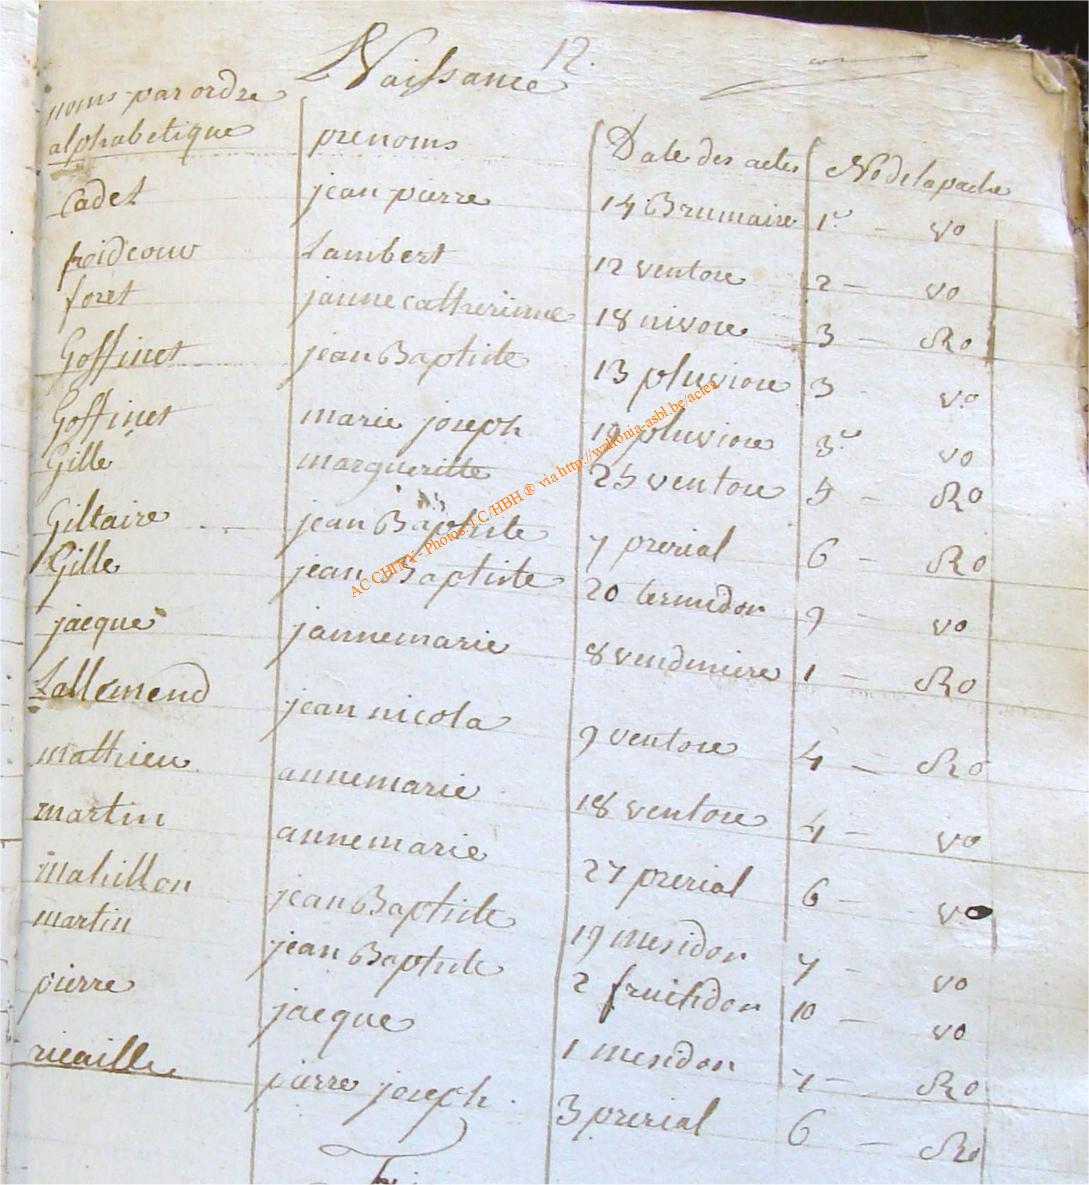 12.
Naissance
noms par ordre
alphabetique prenoms Date des actes No de la pache
Cadet jean pierre 14 Brumaire 1r - vo
froidcour Lambert 12 ventose 2 - vo
foret janne catherinne 18 nivose 3 - Ro
Goffinet jean Baptiste 13 pluviose 3 vo
Goffinet marie joseph 19 pluviose 3r vo
Gille margueritte 25 ventose 5 - Ro
Giltaire jean Baptiste 7 prerial 6 - Ro
Gille jean Baptiste 20 termidor 9 vo
jacque jannemarie 8 vendmiere 1 - Ro
Lallemend jean nicola 9 ventose 4 - Ro
mathieu annemarie 18 ventose 4 - vo
martin annemarie 27 prerial 6 - vo
mahillon jean Baptiste 19 mesidor 7 - vo
martin jean Baptiste 2 fruictidor 10 - vo
pierre jacque 1 mesidor 7 - Ro
ricaille pierre joseph 3 prerial 6 - Ro
AC CHINY - Photos: J C/HBH ® via http://wallonia-asbl.be/actes